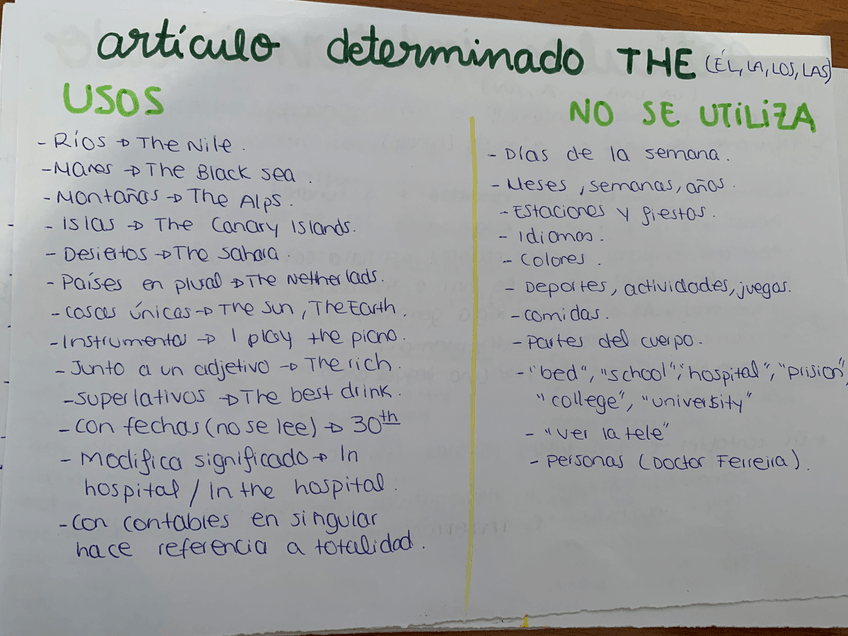 artículo determinado THE (ÉL, LA, LOS, LAS)
USOS
- Ríos → The Nile.
- Mares → The Black sea
- Montañas → The Alps.
- Islas → The Canary Islands.
- Desiertos → The Sahara.
- Países en plural → The Netherlads.
- cosas únicas → The Sun, The Earth.
- Instrumentos → I play the piano.
- Junto a un adjetivo → The rich.
- superlativos → The best drink.
- con fechas (no se lee) → 30th
- Modifica significado → In
hospital / In the hospital.
- Con contables en singular
hace referencia a totalidad.
NO SE UTILIZA
- Días de la semana.
- Meses, semanas, años.
- Estaciones y fiestas.
- Idiomas.
- Colores.
- Deportes, actividades, juegos.
- comidas.
- Partes del cuerpo.
- "bed", "school", "hospital", "prision",
"college", "university"
- "ver la tele"
- Personas (Doctor Ferreira).